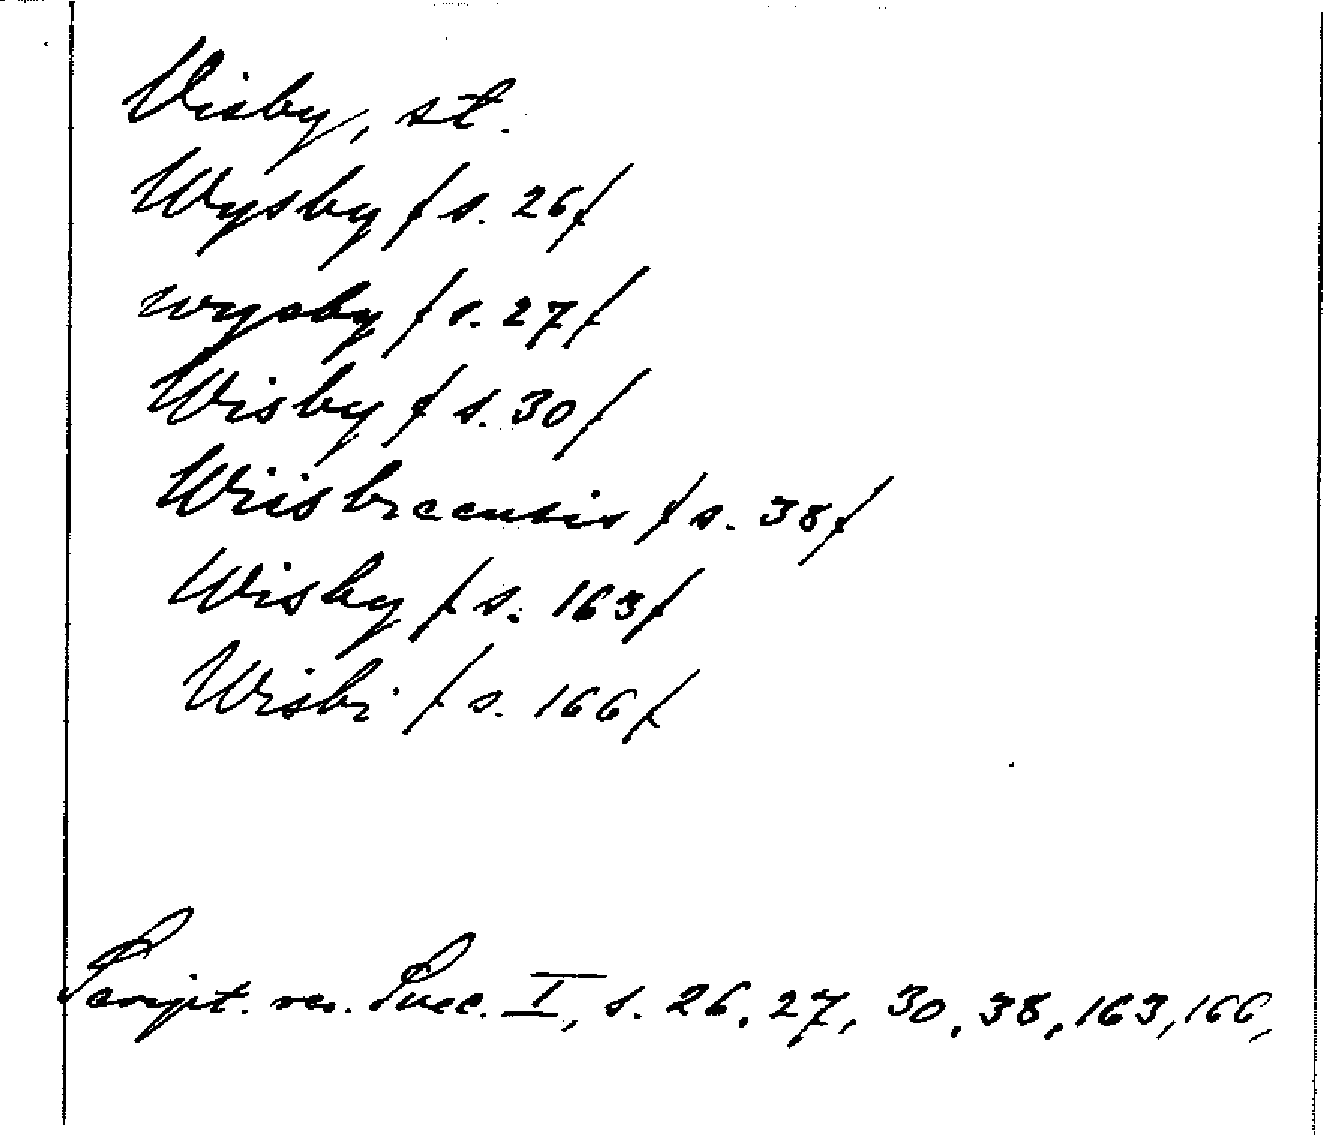 Visby, st.
Wysby / s. 26/
wysby / s. 27/
Wisby / s. 30/
Wisbycensis / s. 38/
Wisby / s. 163/
Wisbi / s. 166/
Script. rer. Suec. I, s. 26, 27, 30, 38, 163, 166,